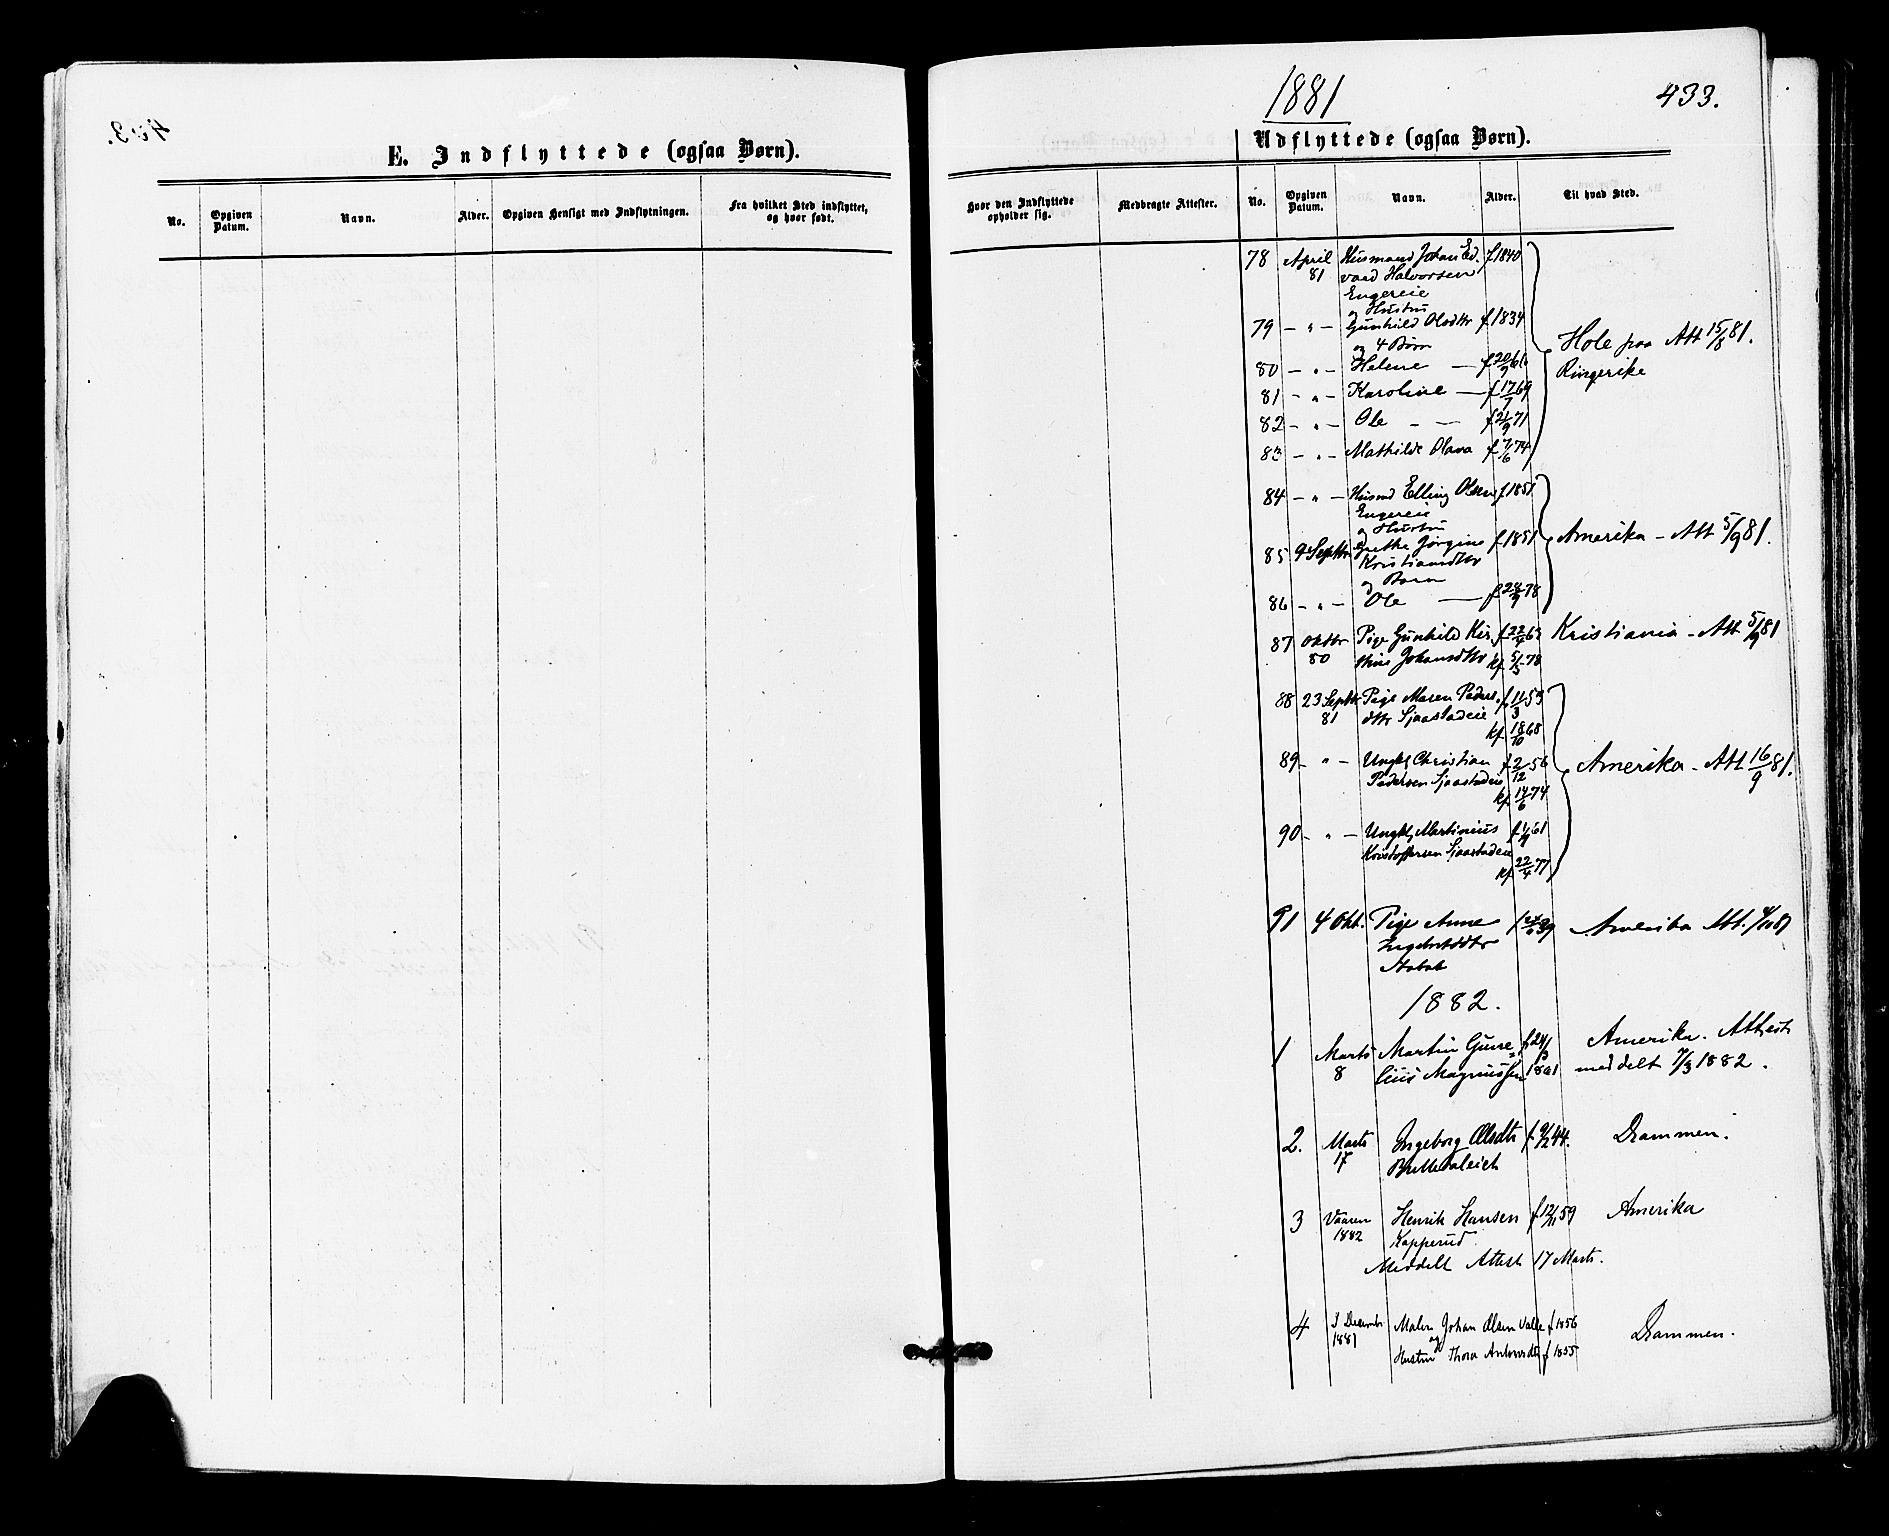 1881
433.
E. Indflyttede (ogsaa Børn).
Udflyttede (ogsaa Børn).
No. Opgiven Datum. Navn. Alder. Opgiven Hensigt med Indflytningen. Fra hvilket Sted indflyttet, og hvor født. Hvor den Indflyttede opholder sig. Medbragte Attester. No. Opgiven Datum. Navn. Alder. Til hvad Sted.
78 April Husmand Johan Ed- f 1840
81 vard Halvorsen
Engereie
og Hustru
79 – " – Gunhild Olsdtr f 1834
og 4 Børn
Hole paa Att 15/8 81.
80 – " – Helene — f 20/9 66
Ringerike
81 – " – Karoline — f 17/7 69
82 – " – Ole – — f 21/9 71
83 – " – Mathilde Olava f 7/6 74
84 – " – Husmd Elling Olsen f 1851
Engereie
og Hustru
85 9 Septbr Grethe Jørgine f 1851 Amerika – Att 5/9 81.
Kristiansdtr
og Barn
86 – " – Ole — f 28/9 78
87 Oktbr Pige Gunhild Kir- f 22/4 63 Kristiania – Att 5/9 81
80 stine Johansdtr kf 5/5 78
88 23 Septbr Pige Maren Peders- f 11/3 53
81 dttr Sjaastadeie
kf 18/10 68
89 – " – Ungkl Christian f 2/12 56 Amerika – Att 16/9 81.
Pedersen Sjaastadeie
kf 14/6 74
90 – " – Ungkl Martinius f 1/9 61
Kristoffersen Sjaastadeie
kf 22/4 77
91 4 Okt. Pige Anne Amerika Att. 4/10 81
1882.
1 Marts Martin Gune- f 24/3 Amerika. Attest
8 lius Magnussen 1861 meddelt 7/3 1882.
2. Marts Ingeborg Olsdtr f. 9/2 44. Drammen.
17
3 Vaaren Henrik Hansen f 12/11 59 Amerika
1882 Kopperud
Meddelt Attest 17 Marts.
4 I Decembr Maler Johan Olsen Valle f 1856 Drammen.
1881 og
Hustru Thora Antonsdtr f 1855